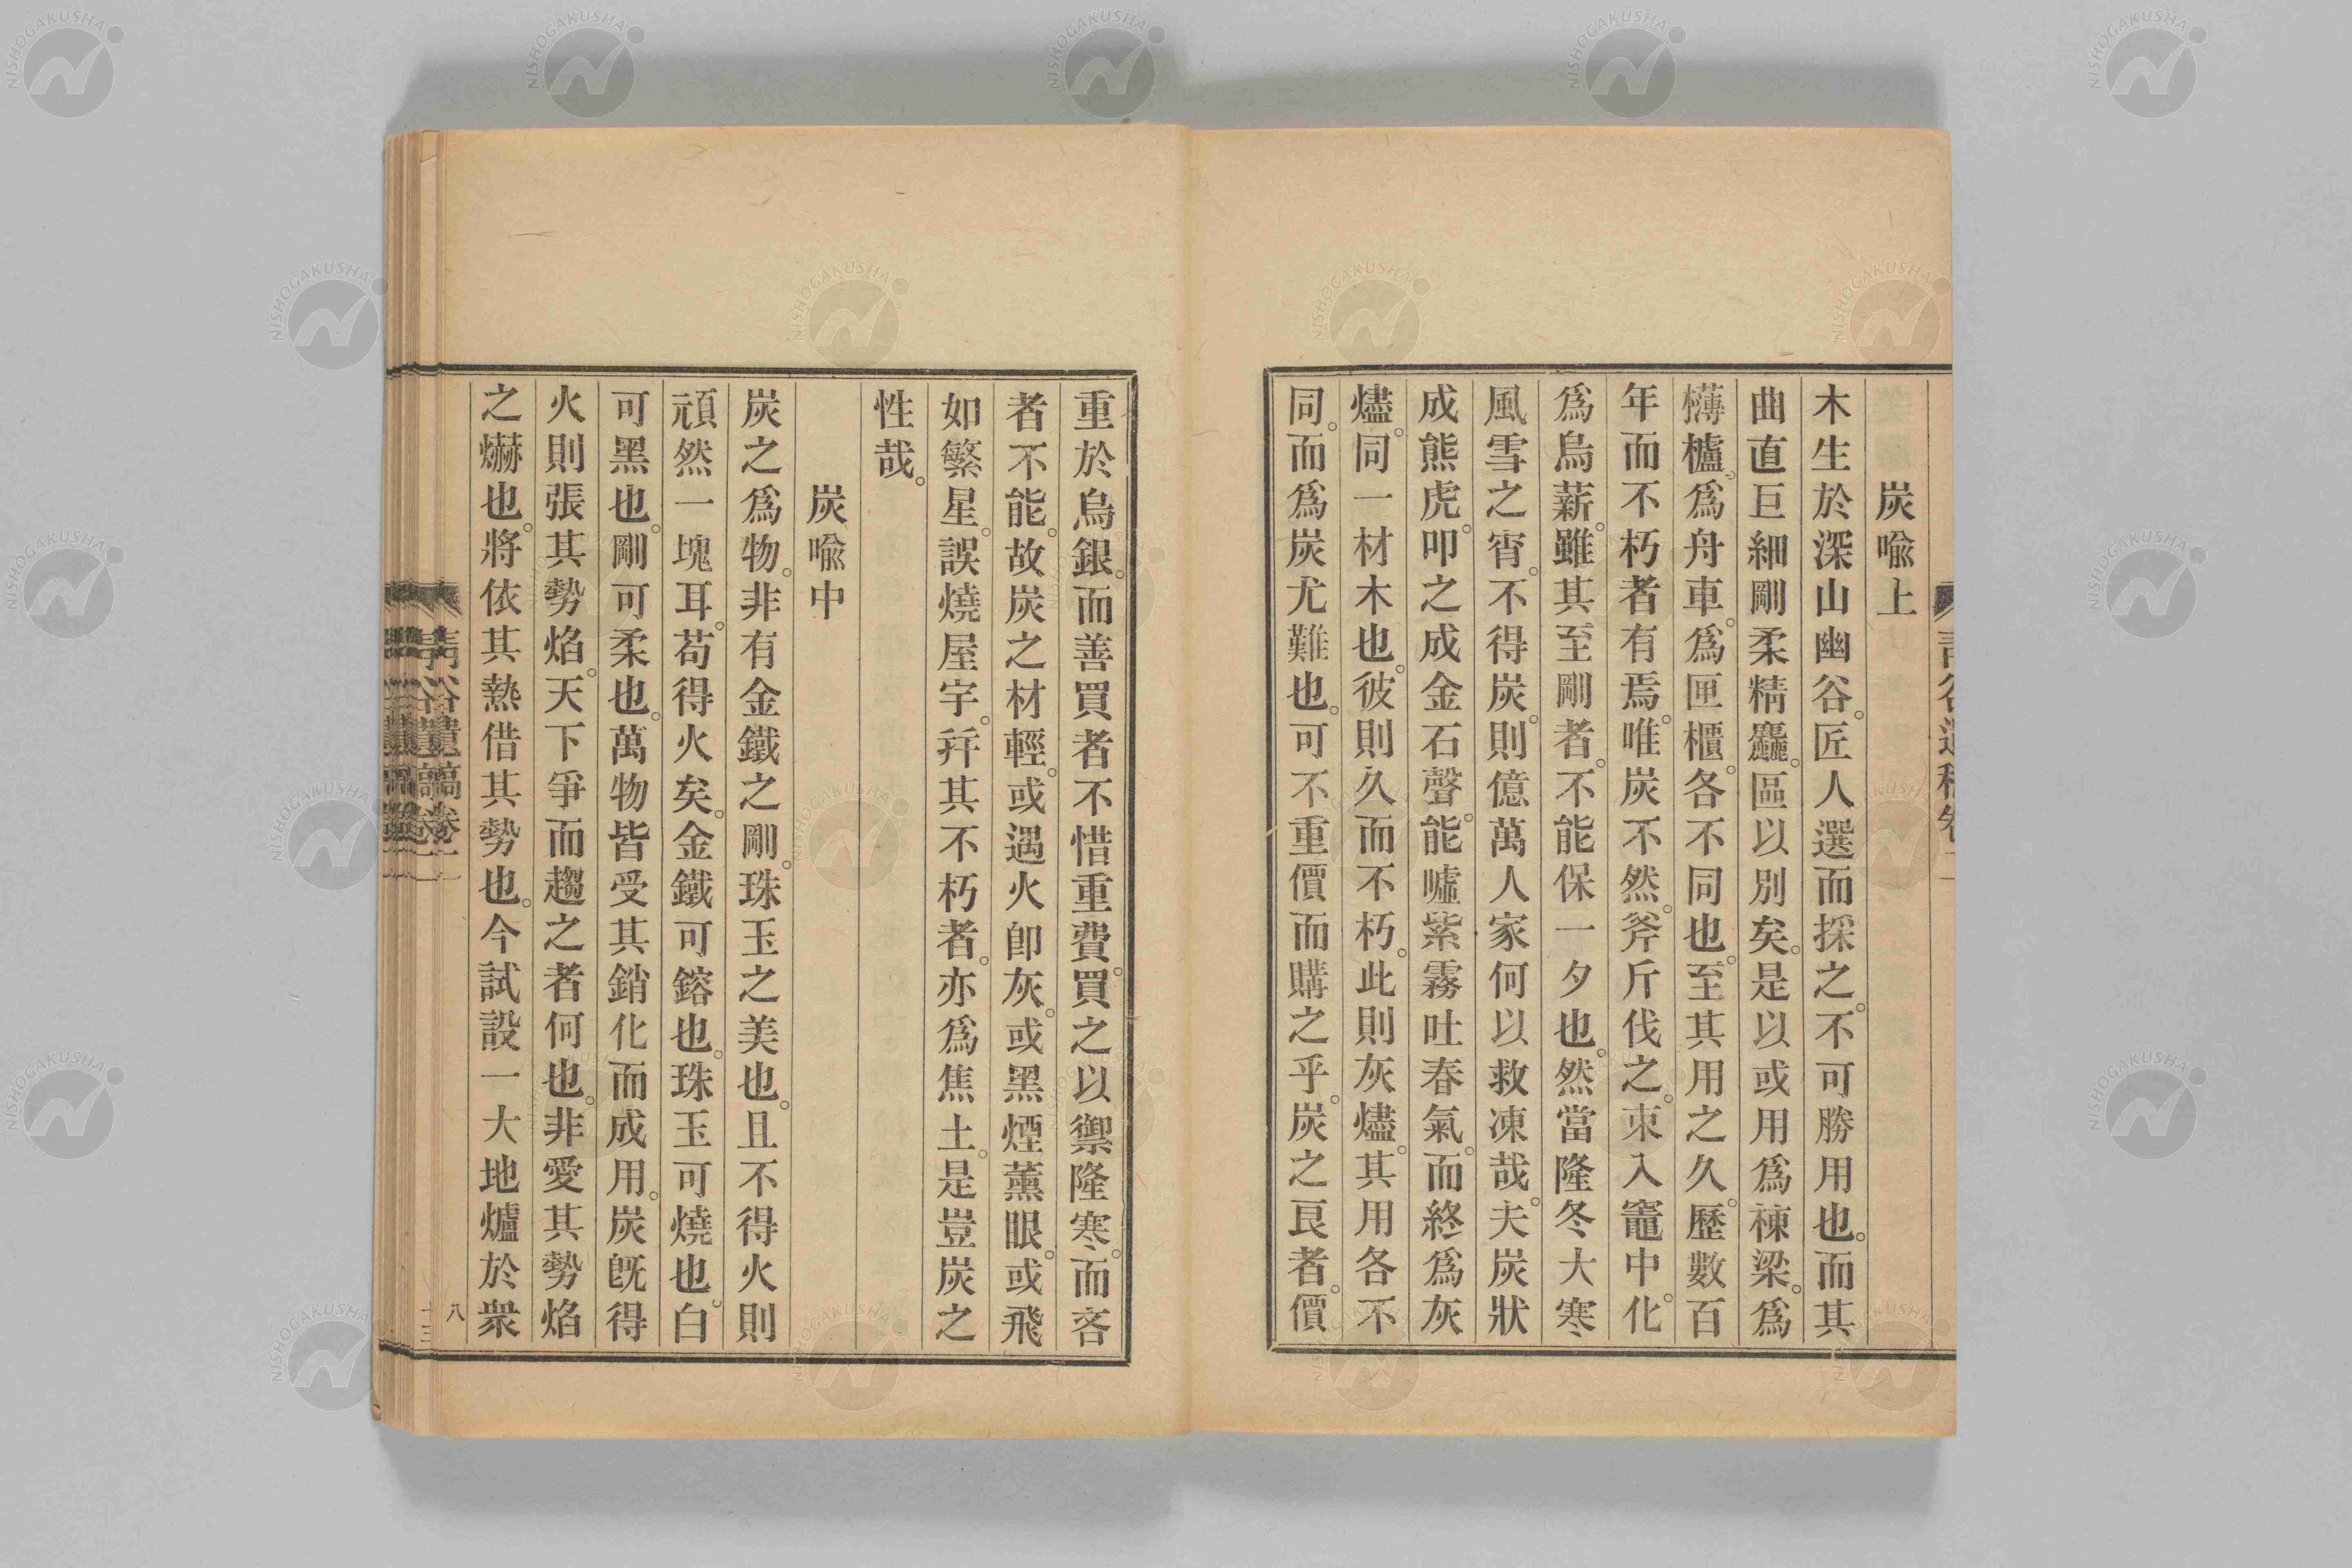 炭喩上
木生於深山幽谷。匠人選而採之。不可勝用也。而其
曲直巨細剛柔精麤。區以別矣。是以或用爲棟梁。爲
欂櫨。爲舟車。爲匣櫃。各不同也。至其用之久。歷數百
年而不朽者有焉。唯炭不然。斧斤伐之。束入竈中。化
爲烏薪。雖其至剛者。不能保一夕也。然當隆冬大寒、
風雪之宵。不得炭。則億萬人家何以救凍哉。夫炭狀
成熊虎。叩之成金石聲。能噓紫霧吐春氣。而終爲灰
燼。同一材木也。彼則久而不朽。此則灰燼。其用各不
同。而爲炭尤難也。可不重價而購之乎。炭之良者。價
重於烏銀。而善買者不惜重費。買之以禦隆寒。而吝
者不能。故炭之材輕。或遇火卽灰。或黑煙薰眼。或飛
如繁星。誤燒屋宇。幷其不朽者。亦爲焦土。是豈炭之
性哉。
炭喩中
炭之爲物。非有金鐵之剛。珠玉之美也。且不得火則
頑然一塊耳。苟得火矣。金鐵可鎔也。珠玉可燒也。白
可黑也。剛可柔也。萬物皆受其銷化而成用。炭旣得
火則張其勢焰。天下爭而趨之者何也。非愛其勢焰
之爀也。將依其熱借其勢也。今試設一大地爐於衆
靑谷遺稿卷二
八
NISHOGAKUSHA